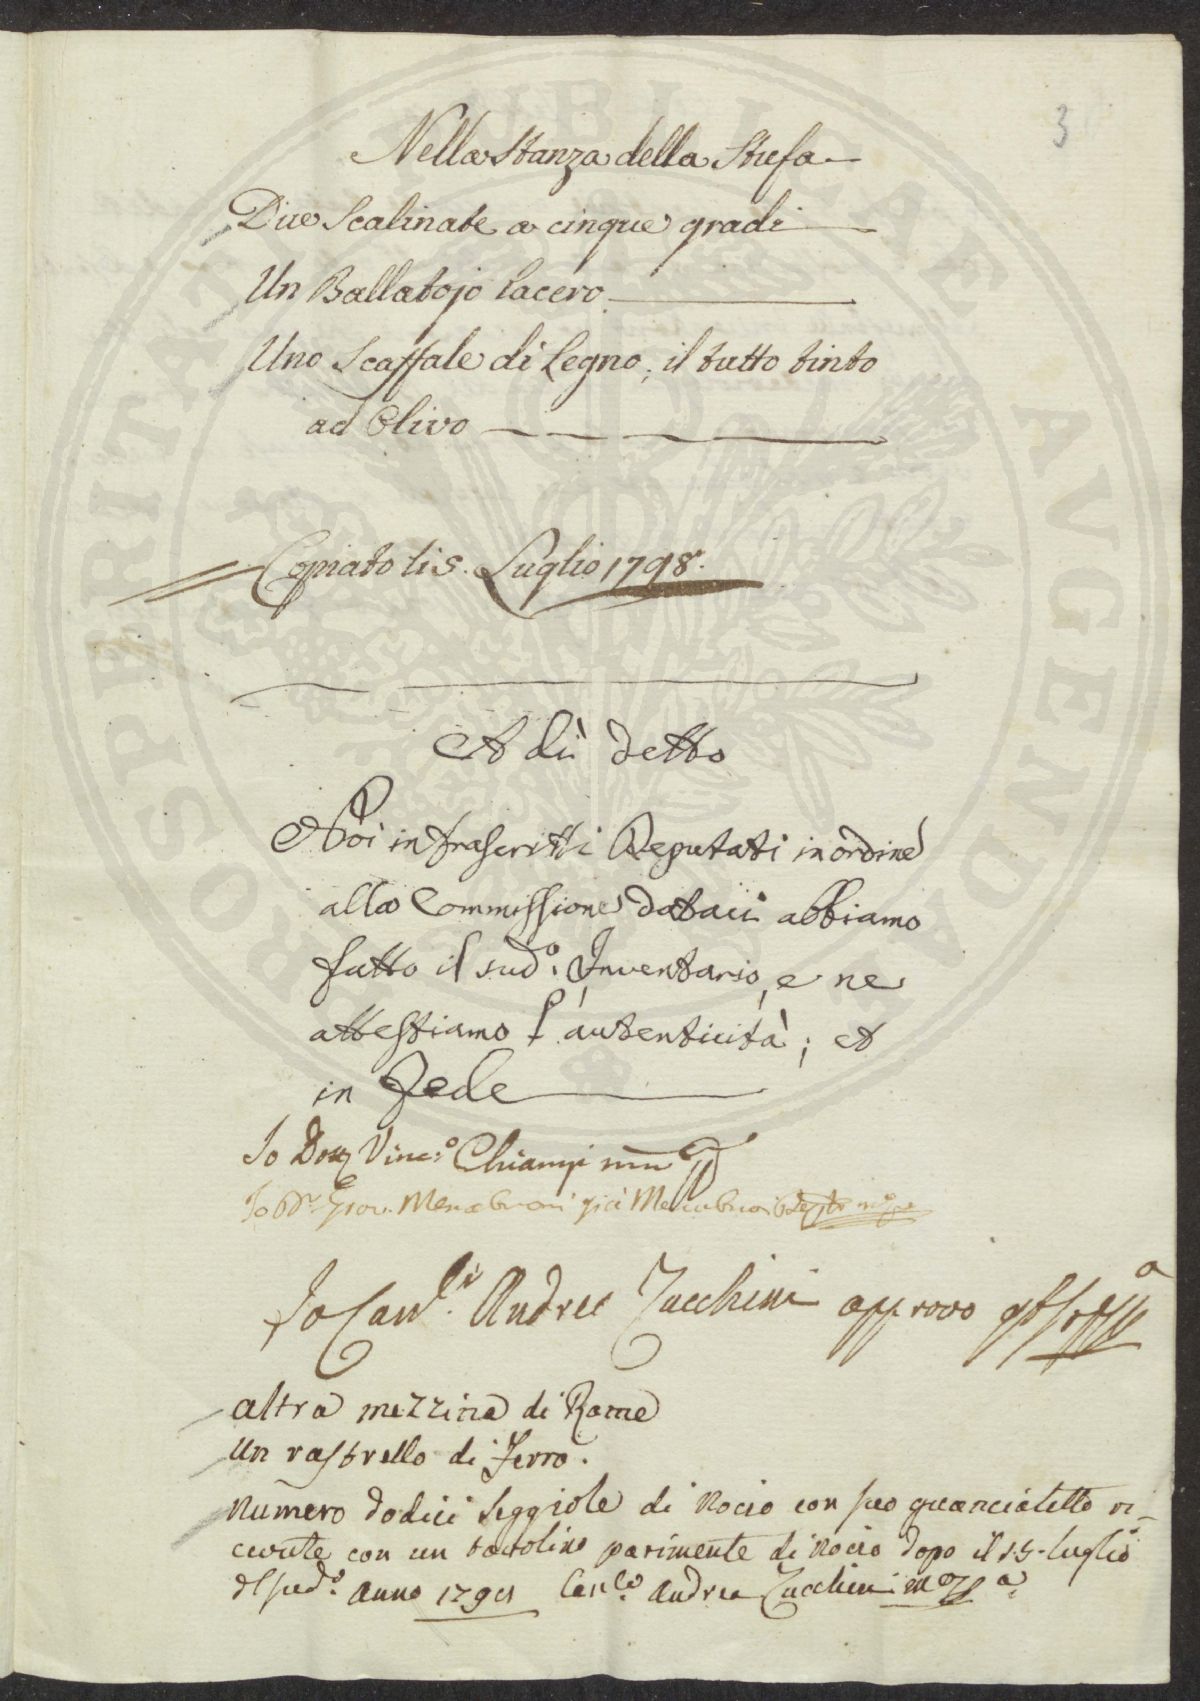 3
Nella Stanza della Stufa
Due Scalinate a cinque gradi
Un Ballatojo lacero
Uno Scaffale di Legno; il tutto tinto
ad Olivo
Copiato li 5. Luglio 1798.
A dì detto
Noi infrascritti Deputati in ordine
alla Commissione dataci abbiamo
fatto il sud.º Inventario, e ne
attestiamo l'autenticità; et
in Fede
Io Dott Vinc.º Chiampi
Io Giov. Menabuoni già
Io Can.co Andrea Zucchini approvo
altra mezzina di Rame
Un rastrello di Ferro.
Numero dodici Seggiole di Nocio con suo guancialetto ri-
cevute con un tavolino parimente di Nocio dopo il 15. luglio
d.sud.º anno 1798 Can.co Andrea Zucchini
PROSPERITATI PUBLICAE AUGENDAE